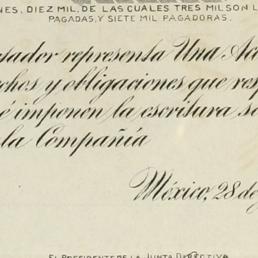 NES, DIEZ MIL, DE LAS CUALES TRES MIL SON L
PAGADAS, Y SIETE MIL PAGADORAS.
tador representa Una Acc
chos y obligaciones que resp
é imponen la escritura so
la Compañía
México, 28 de
EL PRESIDENTE DE LA JUNTA DIRECTIVA